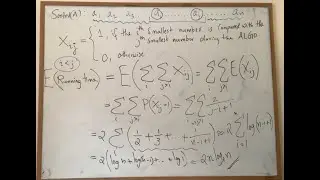 Sorted(A) a₁ a₂ a₃ aᵢ aⱼ
Xᵢⱼ = { 1, if the iᵗʰ smallest number is compared with the jᵗʰ
smallest number during the ALGO
0, otherwise
(i<j)
E(Running time) = E(∑ᵢ ∑ⱼ>ᵢ Xᵢⱼ) = ∑∑ⱼ>ᵢ E(Xᵢⱼ)
= ∑ᵢ ∑ⱼ>ᵢ P(Xᵢⱼ=1) = ∑ᵢ ∑ⱼ>ᵢ 2/(j-i+1)
= 2 ∑ (1/2 + 1/3 + ... + 1/(n-i+1)) ≈ 2 ∑ log(n-i+1)
= 2(log n + log(n-1) + ... + log 1) ≈ 2n log n